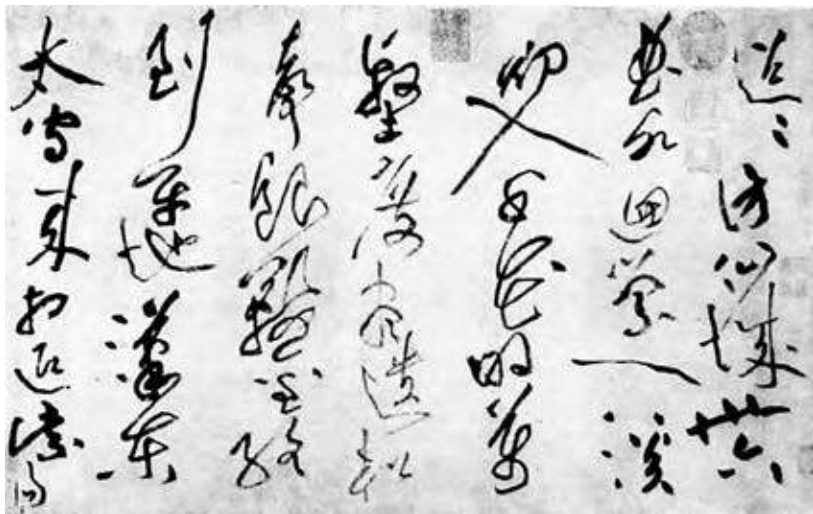 迢〻訪仙城卅六
曲水迴縈一溪
初入千花明萬
壑度盡松風
聲銀鞍金絡
到平地漢東
太守來相迎紫陽